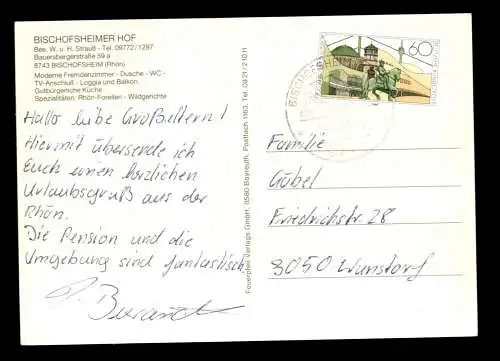 BISCHOFSHEIMER HOF
Bes. W. u. H. Strauß - Tel. 09772/1297
Bauersbergerstraße 59 a
8743 BISCHOFSHEIM (Rhön)
Moderne Fremdenzimmer - Dusche - WC -
TV-Anschluß - Loggia und Balkon.
Gutbürgerliche Küche
Spezialitäten: Rhön-Forellen - Wildgerichte
Hallo liebe Großeltern!
Hiermit übersende ich
Euch einen herzlichen
Urlaubsgruß aus der
Rhön.
Die Pension und die
Umgebung sind fantastisch.
Fouergfell Verlags GmbH, 8580 Bayreuth, Postfach 1163, Tel. 0921/21011
60
Familie
Göbel
Friedrichstr. 28
3050 Wunstorf